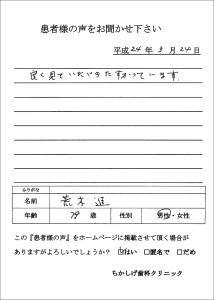 患者様の声をお聞かせ下さい
平成24年3月24日
良く見ていただきたすかっています。
ふりがな
名前 荒木 進
年齢 79 歳 性別 男性・女性
この『患者様の声』をホームページに掲載させて頂く場合が
ありますがよろしいでしょうか? ☑はい □匿名で □だめ
ちかしげ歯科クリニック